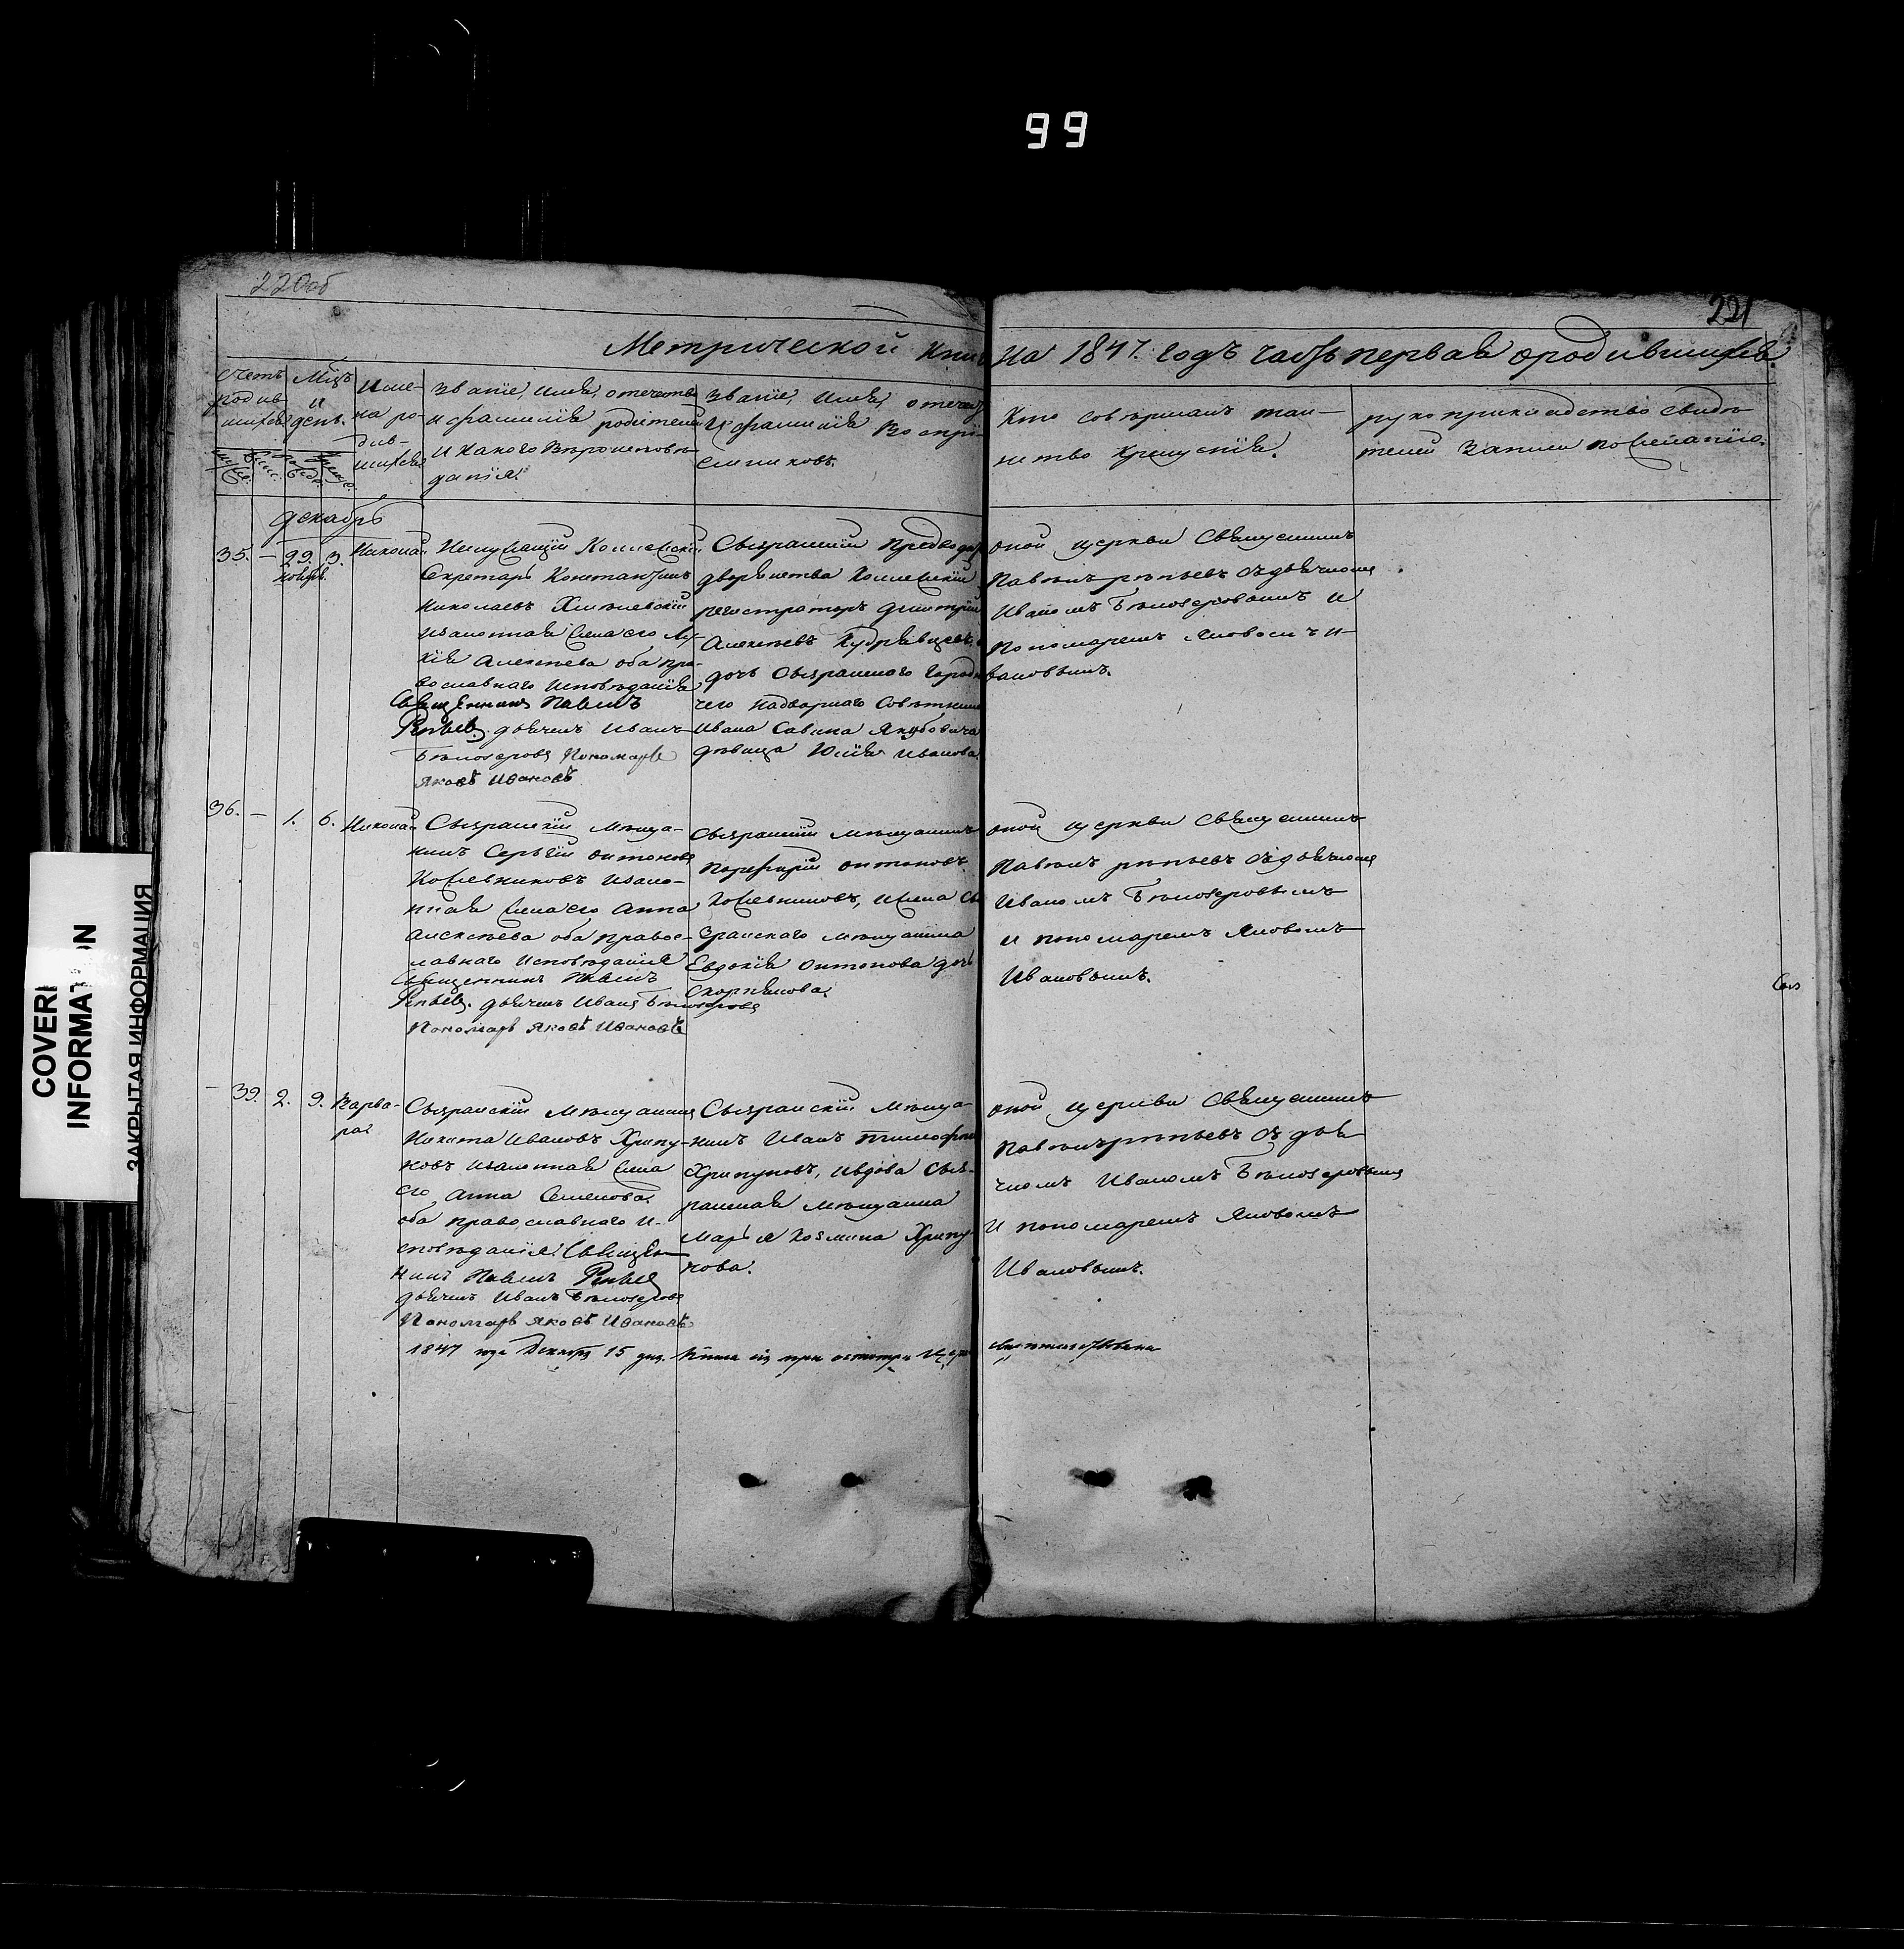 99
220об
221
Метрической Книги на 1847. годъ часть первая о родившихся.
Счетъ родив-
шихся
Мѣцъ
и
день.
Име-
на ро-
див-
шихся
Званіе, имя, отечество
и фамилія родителей
и какого вѣроисповѣ-
данія.
Званіе, имя, отечест
и фамилія воспрі-
емниковъ.
Кто совершалъ таи-
нство крещенія.
рукоприкладство свидѣ
телей записи по желанію.
Декабрь
35. — 29. 3. Николай
ноябр.
Неслужащій Коллежскій
Секретарь Константинъ
Николаевъ Хмѣлевскій
и законная жена его
Алексѣева оба пра-
вославнаго исповѣданія
Священникъ Павелъ
дьячекъ Иванъ
Бѣлозеровъ Пономарь
Яковъ Ивановъ
Сызранскій Предвод
дворянства Коллежскій
регистраторъ Дмитрій
Алексѣевъ Кудрявцевъ, и
дочь Сызранскаго Городн
чего Надворнаго Совѣтника
Ивана Савина Якубовича
дѣвица Юлія Иванова
оной церкви Священникъ
Павелъ Рѣпьевъ съ дьячкомъ
Иваномъ Бѣлозеровымъ и
Пономаремъ Яковомъ И-
вановымъ.
36. — 1. 6. Николай
Сызранскій мѣща-
нинъ Сергѣй Антоновъ
Кожевниковъ и зако-
нная жена его Анна
Алексѣева оба правос-
лавнаго исповѣданія
Священникъ Павелъ
дьячекъ Иванъ Бѣлозеровъ
Пономарь Яковъ Ивановъ
Сызранскій мѣщанинъ
Порфирій Антоновъ
Кожевниковъ, и жена Сы
зранскаго мѣщанина
Евдокія Антонова дочь
Скорнякова.
оной церкви Священникъ
Павелъ Рѣпьевъ съ дьячкомъ
Иваномъ Бѣлозеровымъ
и пономаремъ Яковомъ
Ивановымъ.
— 39. 2. 9. Варва-
ра
Сызранскій мѣщанинъ
Никита Ивановъ Хрипу-
новъ и законная жена
его Анна Семенова.
оба православнаго и-
сповѣданія. Священ
никъ Павелъ
дьячекъ Иванъ Бѣлозеровъ
Пономарь Яковъ Ивановъ
Сызранскій мѣща-
нинъ Иванъ Тимофѣе
Хрипуновъ, и вдова Сыз-
ранская мѣщанка
Марья Козмина Хрипу
нова.
оной церкви Священникъ
Павелъ Рѣпьевъ съ дья
чкомъ Иваномъ Бѣлозеровымъ
и пономаремъ Яковомъ
Ивановымъ.
1847 года Декабря 15 дня. Книга сія при осмотрѣ Церк свидѣтельствована
COVERI
INFORMATION
ЗАКРЫТАЯ ИНФОРМАЦИЯ